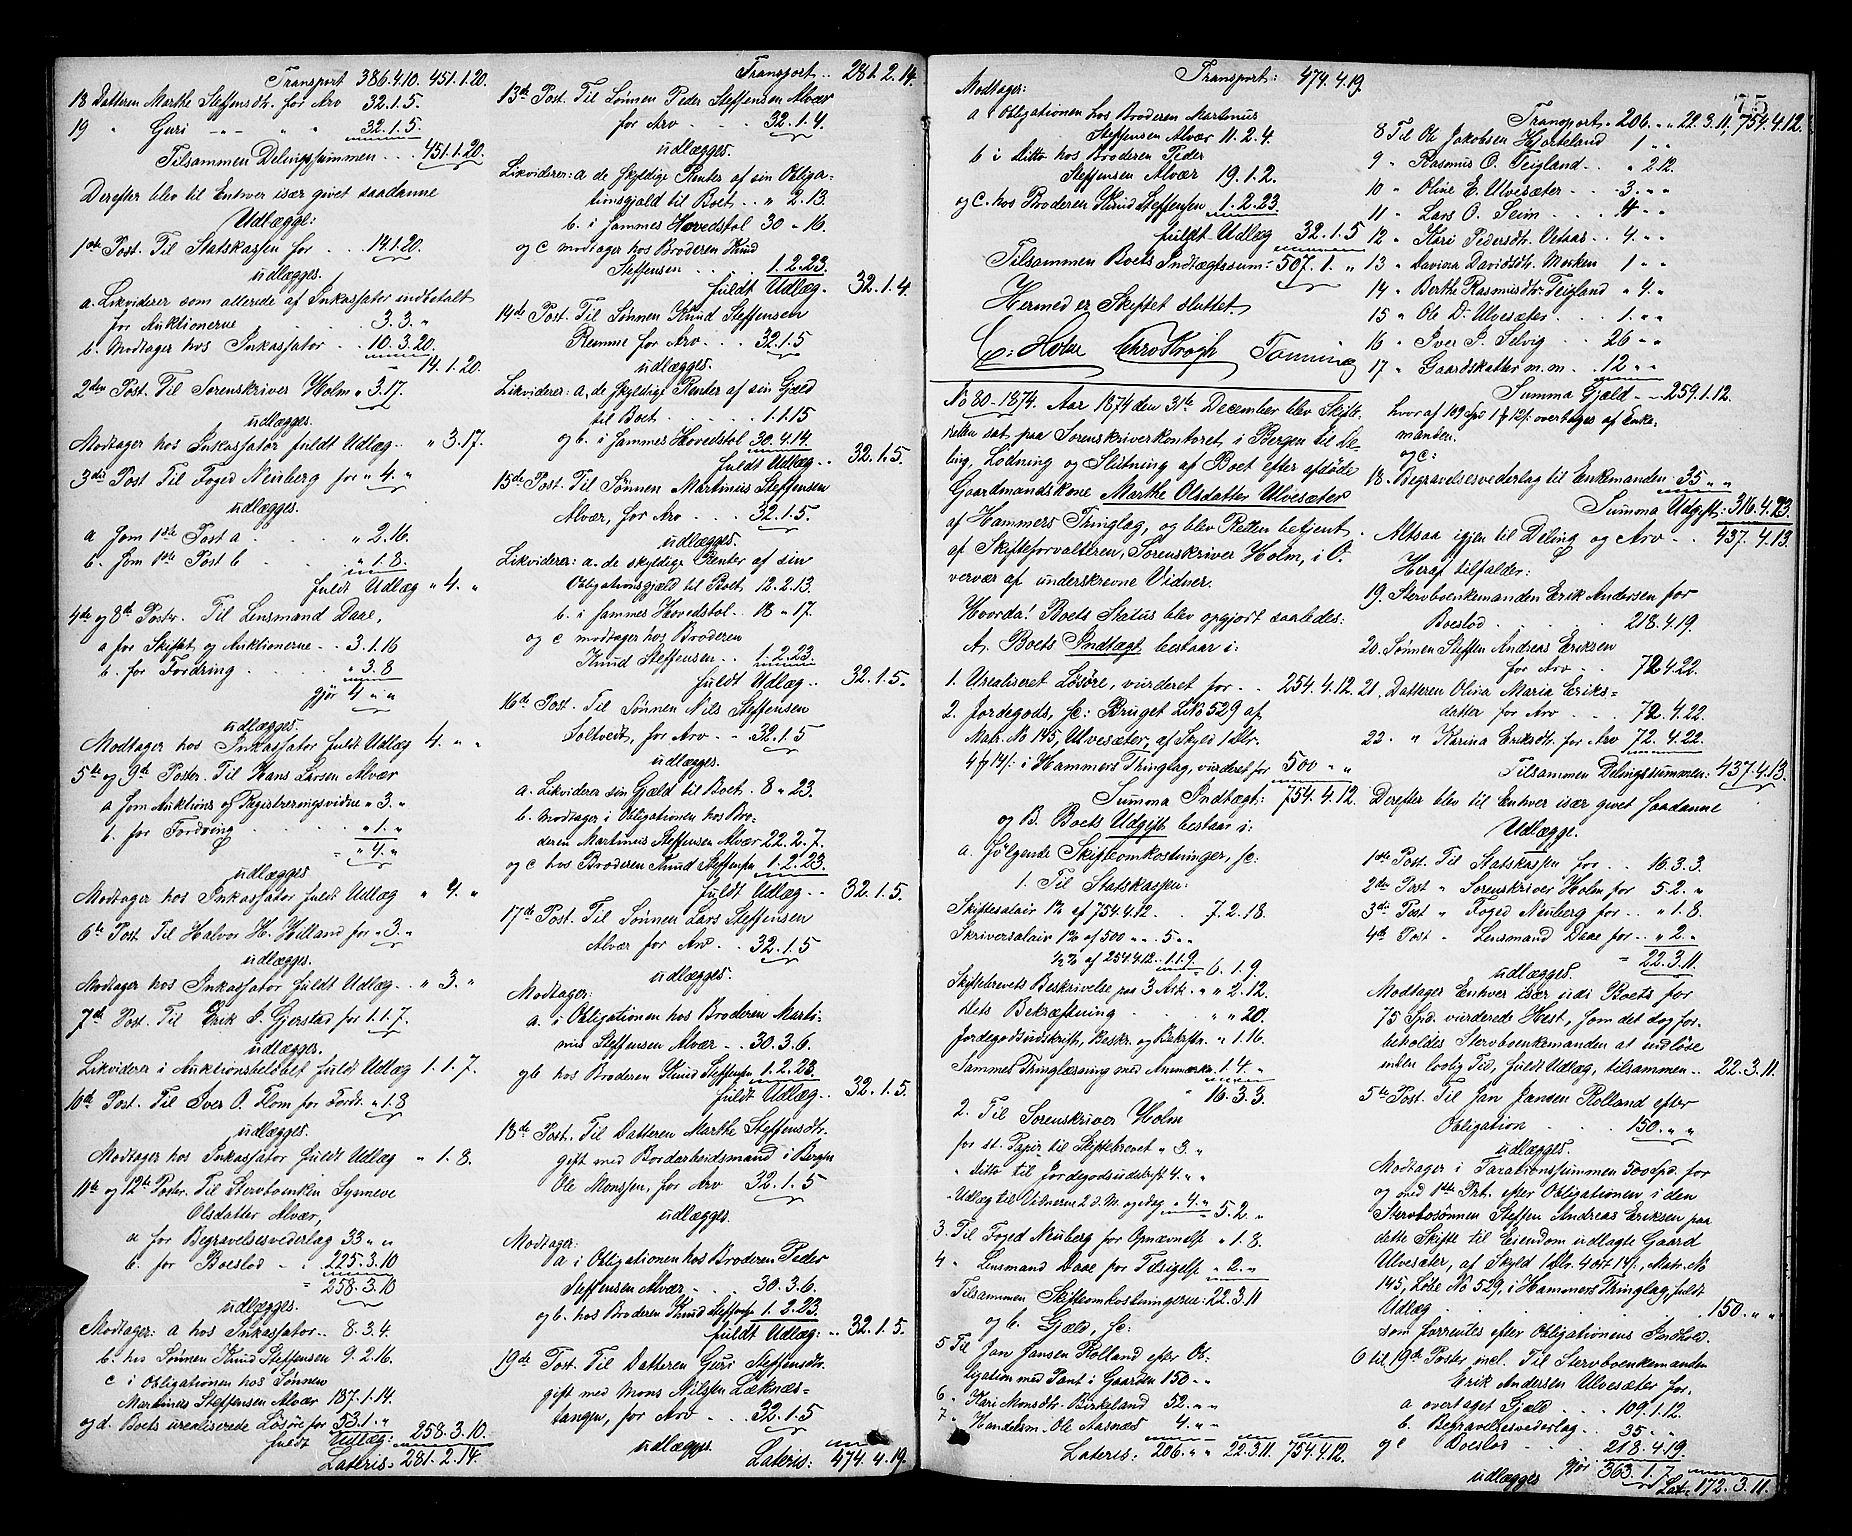 Transport 386.4.10. 451.1.20.
18 Datteren Marthe Steffensdtr. for Arv 32.1.5.
19 " Guri -"- " " 32.1.5
Tilsammen Delingssummen . . . 451.1.20.
Derefter blev til Enhver især givet saadanne
Udlægge:
1ste Post. Til Statskassen for . . . 14.1.20.
udlægges.
a. Likviderer som allerede af Inkassator indbetalt
for Auktionerne . . . 3.3. "
b. Modtager hos Inkassator . . 10.3.20.
14.1.20.
2den Post. Til Sorenskriver Holm " 3.17.
udlægges.
Modtager hos Inkassator fuldt Udlæg . . " 3.17.
3die Post Til Foged Neuberg for " 4. "
udlægges.
a som 1ste Post a . . . " 2.16.
b. som 1ste Post b . . . " 1.8.
fuldt Udlæg " 4. "
4de og 8de Postr. Til Lensmand Daae,
a for Skiftet og Auktionerne . . 3.1.16
b. for Fordring . . . " 3.8
gjør 4 " "
udlægges.
Modtager hos Inkassator fuldt Udlæg 4. " "
5te og 9de Poster. Til Hans Larsen Alvær
a som Auktions og Registreringsvidne " 3. "
b. for Fordring . . . " 1. "
" 4. "
udlægges
Modtager hos Inkassator fuldt Udlæg " 4. "
6te Post Til Halvor H. Hilland for " 3. "
udlægges.
Modtager hos Inkassator fuldt Udlæg . . " 3. "
7de Post. Til Erik S. Gjerstad for 1.1.7.
udlægges.
Likviderer i Auktionsbeløbet fuldt Udlæg 1.1.7.
10de Post. Til Iver O. Flom for Fordr. " 1.8
udlægges.
Modtager hos Inkassator fuldt Udlæg " 1.8.
11te og 12te Poster. Til Stervboenken Synneve
Olsdatter Alvær,
a for Begravelsesvederlag 33 " "
b. for Boeslod . . 225.3.10
= 258.3.10
udlægges.
Modtager: a hos Inkassator . . 8.3.4.
b. hos Sønnen Knud Steffensen 9.2.16.
c i Obligationen hos Sønnen
Martinus Steffensen Alvær 187.1.14.
og d. Boets urealiserede Løsøre for 53.1. "
fuldt Udlæg: 258.3.10.
Lateris = 281.2.14.
Transport . . 281.2.14.
13de Post. Til Sønnen Peder Steffensen Alvær
for Arv . . . 32.1.4.
udlægges.
Likviderer: a de skyldige Renter af sin Obliga-
tionsgjæld til Boet . . " 2.13.
b. i sammes Hovedstol 30 " 16.
og c modtager hos Broderen Knud
Steffensen . . . 1.2.23.
fuldt Udlæg . 32.1.4.
14de Post. Til Sønnen Knud Steffensen
Remme for Arv . . . 32.1.5
udlægges.
Likviderer: a, de skyldige Renter af sin Gjæld
til Boet . . . 1.1.15
og b. i sammes Hovedstol 30.4.14.
fuldt Udlæg . . 32.1.5.
15de Post. Til Sønnen Martinus Steffensen
Alvær, for Arv . . . 32.1.5.
udlægges.
Likviderer: a. de skyldige Renter af sin
Obligationsgjæld til Boet. 12.2.13.
b. i sammes Hovedstol . . 18 " 17.
og c modtager hos Broderen
Knud Steffensen . . 1.2.23.
fuldt Udlæg . . 32.1.5.
16de Post. Til Sønnen Nils Steffensen
Soltvedt, for Arv . . 32.1.5
udlægges.
a. Likviderer sin Gjæld til Boet . 8 " 23.
b. modtager i Obligationen hos Bro-
deren Martinus Steffensen Alvær 22.2.7.
og c hos Broderen Knud Steffensen 1.2.23.
fuldt Udlæg . . 32.1.5.
17de Post. Til Sønnen Lars Steffensen
Alvær for Arv . . 32.1.5
udlægges.
Modtager:
a. i Obligationen hos Broderen Marti-
nus Steffensen Alvær . . 30.3.6.
og b hos Broderen Knud Steffensen 1.2.23.
fuldt Udlæg . . 32.1.5.
18de Post. Til Datteren Marthe Steffensdtr.
gift med Bordarbeidsmand i Bergen
Ole Monssen, for Arv 32.1.5
udlægges.
Modtager:
a i Obligationen hos Broderen Peder
Steffensen Alvær . . . 30.3.6.
og b. hos Broderen Knud Steffensen 1.2.23.
fuldt Udlæg: . . 32.1.5.
19de Post. Til Datteren Guri Steffensdtr.
gift med Mons Nilssen Læknæs-
tangen, for Arv . . . 32.1.5
udlægges
Lateris: 474.4.19.
Transport: 474.4.19.
Modtager:
a Obligationen hos Broderen Martinus
Steffensen Alvær 11.2.4.
b i Ditto hos Broderen Peder
Steffensen Alvær 19.1.2.
og c. hos Broderen Knud Steffensen 1.2.23.
fuldt Udlæg 32.1.5
Tilsammen Boets Indtægtssum = 507.1. "
Hermed er Skiftet sluttet.
C. Holm Chr. Krogh Tonning
No 80 - 1874. Aar 1874 den 31te December blev Skifte-
retten sat paa Sorenskriverkontoret i Bergen til De-
ling, Lodning og Slutning af Boet efter afdøde
Gaardmandskone Marthe Olsdatter Ulvesæter
af Hammers Thinglag, og blev Retten betjent
af Skifteforvalteren, Sorenskriver Holm, i O-
vervær af underskrevne Vidner.
Hvorda! Boets Status blev opgjort saaledes:
A. Boets Indtægt bestaar i:
1. Urealiseret Løsøre, vurderet for . . 254.4.12.
2. Jordegods, sc: Bruget LNo 529 af
Matr. No 145, Ulvesæter, af Skyld 1 Dlr.
4 ₰ 14/: i Hammers Thinglag, vurderet for 500 " "
Summa Indtægt: 754.4.12.
og B. Boets Udgift bestaar i:
a. Følgende Skifteomkostninger, sc:
1. Til Statskassen:
Skiftesalair 1% af 754.4.12. . . 7.2.18.
Skriversalair 1% af 500 " " . 5 " "
½% af 254.4.12 . 1.1.9. 6.1.9.
Skiftebrevets Beskrivelse paa 3 Ark. " " 2.12.
dets Bekræftning . . . " " 20.
Jordegodsudskrift, Beskr. og Bekrftn. " 1.16.
Sammes Thinglæsning med Anmærkn. 1.4. "
" 16.3.3.
2. Til Sorenskriver Holm
for st. Papir til Skiftebrevet " 3 "
" Ditto til Jordegodsudskrift 4. "
" Udlæg til Vidnerne 2 d. M. og idag " 4. " 5.2. "
3. Til Foged Neuberg for Opnævnelse " 1.8.
4 " Lensmand Daae for Tilsigelse " 2. "
Tilsammen Skifteomkostningerne: 22.3.11
og b. Gjæld, sc:
5 Til Jan Jansen Rolland efter Ob-
ligation med Pant i Gaarden 150 " "
6 " Kari Monsdtr. Birkeland 52. " "
7 " Handelsm. Ole Aasnæs 4. " "
Lateris: 206. " " 22.3.11. 754.4.12.
75
Transport " 206. " " 22.3.11. 754.4.12.
8 Til Ole Jakobsen Hjorteland 1 " "
9 " Rasmus O. Teigland . . " 2.12.
10 " Oline E. Ulvesæter . . 3. " "
11 " Lars O. Seim . . . 4 " "
12 " Kari Pedersdtr. Vetaas . . 4. " "
13 " Davina Davidsdtr. Morken 1 " "
14 " Berthe Rasmusdtr. Teigland " 4. "
15 " Ole D. Ulvesæter . . 1. " "
16 " Iver P. Selvig . . 26 " "
17 " Gaardskatter m.m. . 12 " "
Summa Gjæld . - 259.1.12.
hvoraf 109 Spd 1 ₰ 12/: overtages af Enke-
manden.
og c:
18. Begravelsesvederlag til Enkemanden 35 " "
Summa Udgift: 316.4.23.
Altsaa igjen til Deling og Arv . . 437.4.13.
Heraf tilfalder:
19. Stervboenkemanden Erik Andersen for
Boeslod . . . 218.4.19.
20. Sønnen Steffen Andreas Eriksen
for Arv . . 72.4.22.
21. Datteren Olina Maria Eriks-
datter for Arv . . . 72.4.22.
22. " Karina Eriksdtr. for Arv 72.4.22.
Tilsammen Delingssummen: 437.4.13.
Derefter blev til Enhver især givet saadanne
Udlægge.
1ste Post. Til Statskassen for . . 16.3.3.
2den Post " Sorenskriver Holm for 5.2. "
3die Post " Foged Neuberg for . . " 1.8.
4de Post . Lensmand Daae for . . " 2. "
= 22.3.11.
udlægges.
Modtager Enhver især udi Boets for
75 Spd. vurderede Hest, som det dog for-
beholdes Stervboenkemanden at indløse
inden lovlig Tid, fuldt Udlæg, tilsammen . . 22.3.11.
5te Post. Til Jan Jansen Rolland efter
Obligation . . . 150. " "
udlægges.
Modtager i Taxationssummen 500 Spd. for
og med 1ste Prt. efter Obligationen, i den
Stervbosønnen Steffen Andreas Eriksen paa
dette Skifte til Eiendom udlagte Gaard
Ulvesæter, af Skyld 1 Dlr. 4 ort 14/:, Matr. No
145, Løbe No 529, i Hammers Thinglag, fuldt
Udlæg . . . 150. " "
som forrentes efter Obligationens Indhold.
6 til 19de Poster incl. Til Stervboenkemanden
Erik Andersen Ulvesæter for,
a overtaget Gjæld . . . 109.1.12.
b. Begravelsesvederlag . . 35 " "
og c Boeslod . . . 218.4.19.
gjør 363.1.7.
udlægges
Lat. 172.3.11.